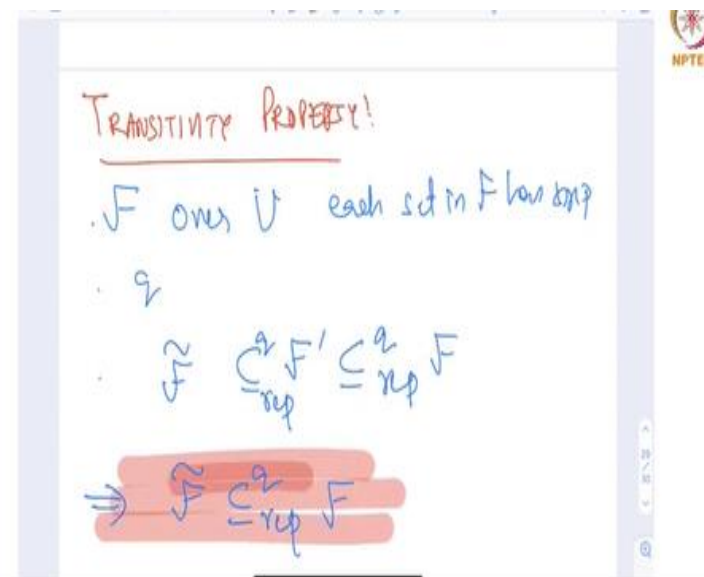 NPTE
TRANSITIVITY PROPERTY!
. F over U each set in F has size p
. q
. F̃ ⊆^q_rep F' ⊆^q_rep F
⇒ F̃ ⊆^q_rep F
29
30